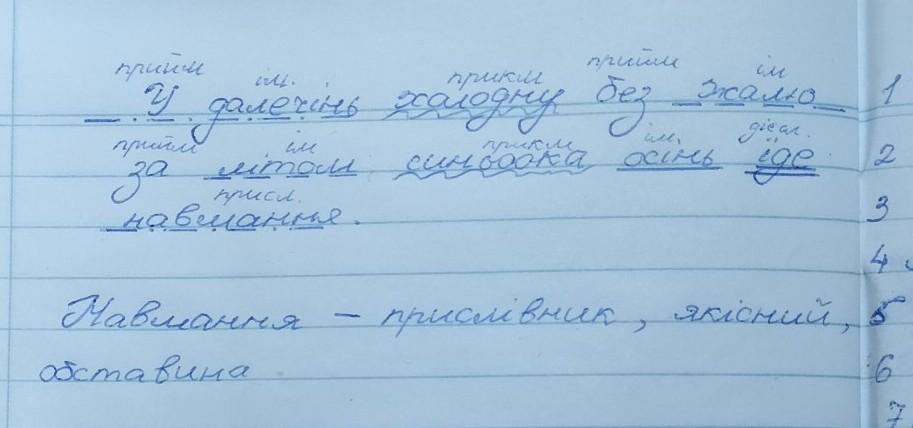 прийм ім. прикм прийм ім
У далечінь холодну без жалю 1
прийм ім прикм ім. дієсл.
за літом синьоока осінь іде 2
присл.
навмання. 3
4
Навмання – прислівник, якісний, 5
обставина 6
7